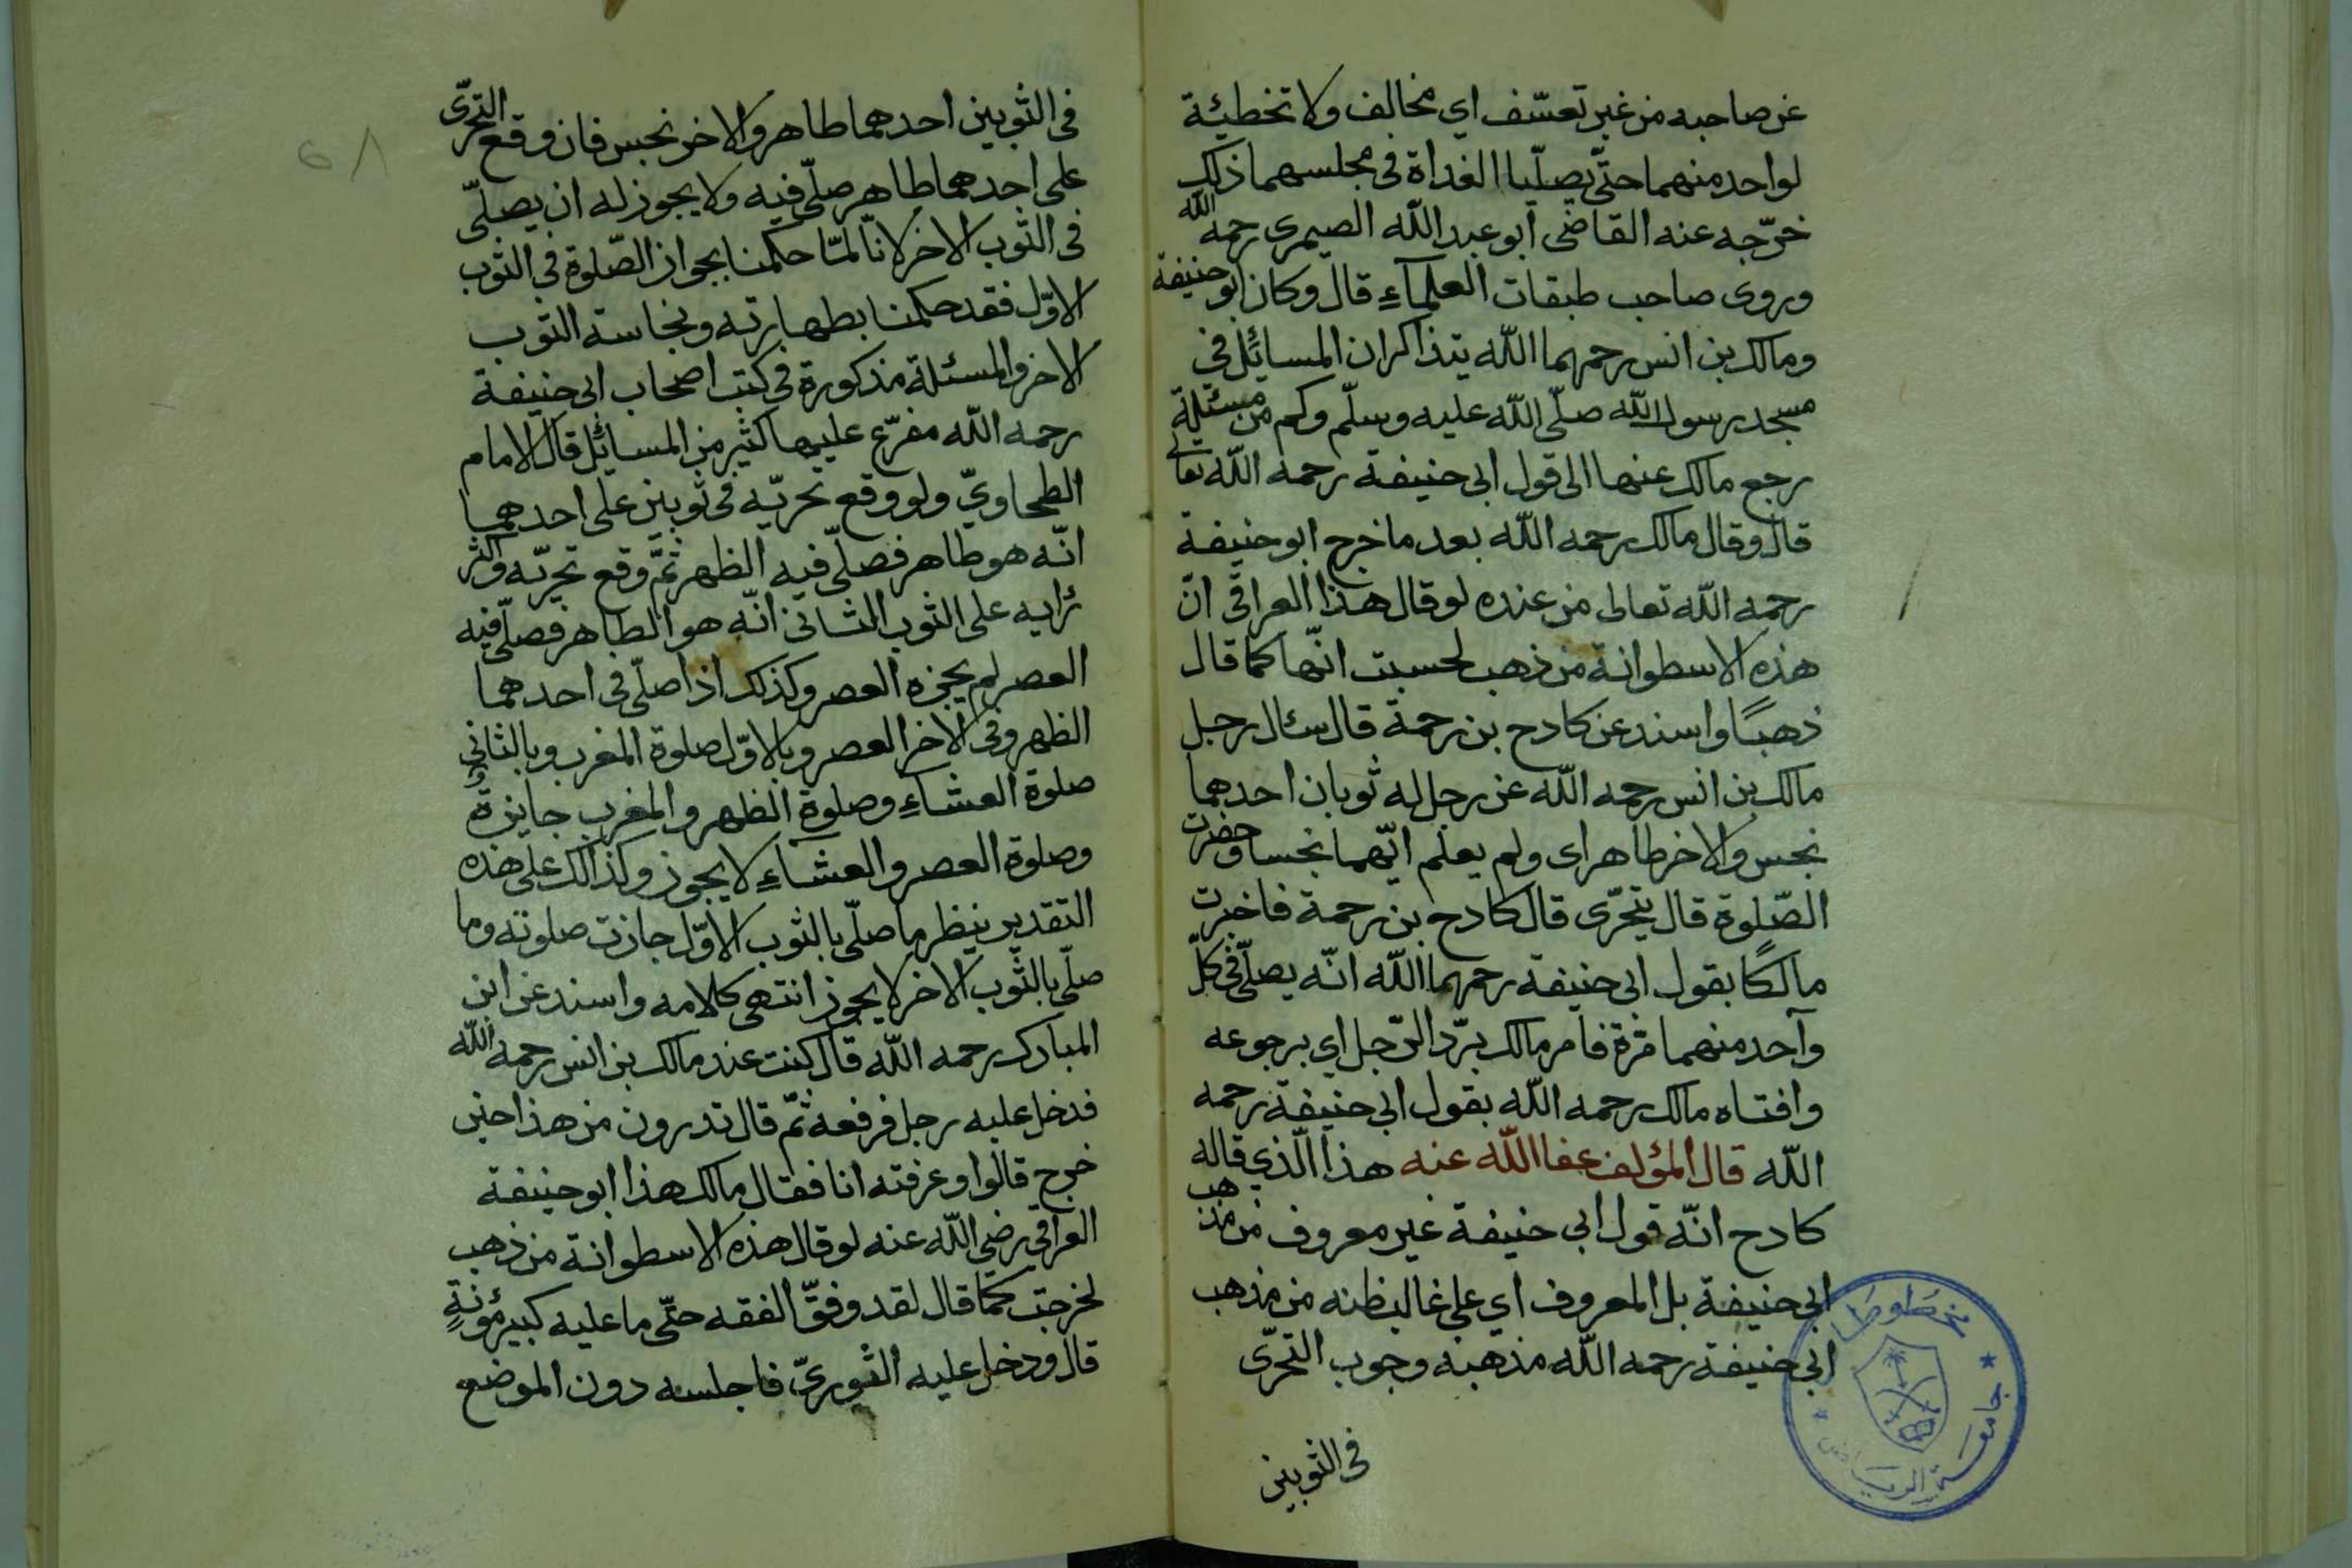 عن صاحبه من غير تعسّف اي مخالف ولا تخطيئة
لواحد منهما حتّى يصلّيا الغداة فى مجلسهما ذلك
خرّجه عنه القاضى ابو عبد اللّه الصيمرى رحمه اللّه
وروى صاحب طبقات العلمآءِ قال وكان ابو حنيفة
ومالك بن انس رحمهما اللّه يتذاكران المسائل فى
مسجد رسول اللّه صلّى اللّه عليه وسلّم وكم من مسئلة
رجع مالك عنها الى قول ابى حنيفة رحمه اللّه تعالى
قال وقال مالك رحمه اللّه بعد ما خرج ابو حنيفة
رحمه اللّه تعالى من عنده لو قال هذا العراقى انّ
هذه الاسطوانة من ذهب لحسبت انّها كما قال
ذهبًا واسند عن كادح بن رحمة قال سئال رجل
مالك بن انس رحمه اللّه عن رجل له ثوبان احدهما
نجس والاخر طاهر اى ولم يعلم ايّهما نجسا وحضرت
الصّلوة قال يتحرّى قال كادح بن رحمة فاخبرت
مالكًا بقول ابى حنيفة رحمهما اللّه انّه يصلّى فى كلّ
واحد منهما مرّة فامر مالك بردّ الرّجل اي برجوعه
وافتاه مالك رحمه اللّه بقول ابى حنيفة رحمه
اللّه قال المؤلف عفا اللّه عنه هذا الّذي قاله
كادح انّه قول ابى حنيفة غير معروف من مذهب
ابى حنيفة بل المعروف اي على غالب ظنه من مذهب
ابى حنيفة رحمه اللّه مذهبه وجوب التحرّى
فى الثوبين
مخطوطا
جامعة الرياض
فى الثوبين احدهما طاهر والاخر نجس فان وقع التحرّى
على احدهما طاهر صلّى فيه ولا يجوز له ان يصلّى
فى الثوب الاخر لانّا لمّا حكمنا بجواز الصّلوة فى الثوب
الاوّل فقد حكمنا بطهارته ونجاسة الثوب
الاخر والمسئلة مذكورة فى كتب اصحاب ابى حنيفة
رحمه اللّه مفرّع عليها كثير من المسائل قال الامام
الطحاويّ ولو وقع تحريّه فى ثوبين على احدهما
انّه هو طاهر فصلّى فيه الظهر ثمّ وقع تحريّه واكثر
رايه على الثوب الثانى انّه هو الطاهر فصلّى فيه
العصر لم يجزه العصر وكذلك اذا صلّى فى احدهما
الظهر وفى الاخر العصر وبالاوّل صلوة المغرب وبالثانى
صلوة العشاءِ وصلوة الظهر والمغرب جايزة
وصلوة العصر والعشآءِ لا يجوز وكذالك على هذه
التقدير ينظر ما صلّى بالثوب الاوّل جازت صلوته وما
صلّى بالثوب الاخر لا يجوز انتهى كلامه واسند عن ابن
المبارك رحمه اللّه قال كنت عند مالك بن انس رحمه اللّه
فدخل عليه رجل فرفعه ثمّ قال تدرون من هذا حين
خرج قالوا وعرفته انا فقال مالك هذا ابو حنيفة
العراقي رضى اللّه عنه لو قال هذه الاسطوانة من ذهب
لخرجت كما قال لقد وفقّ الفقه حتّى ما عليه كبير مؤنةٍ
قال ودخل عليه الثوريّ فاجلسه دون الموضع